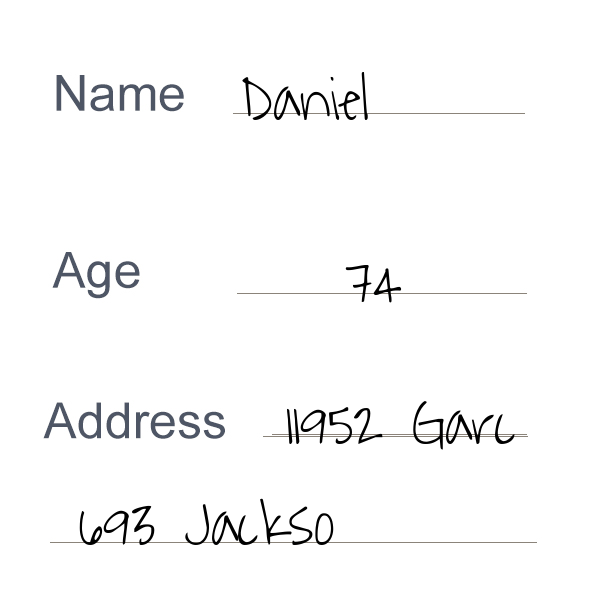 Name Daniel
Age 74
Address 11952 Garc
693 Jackso